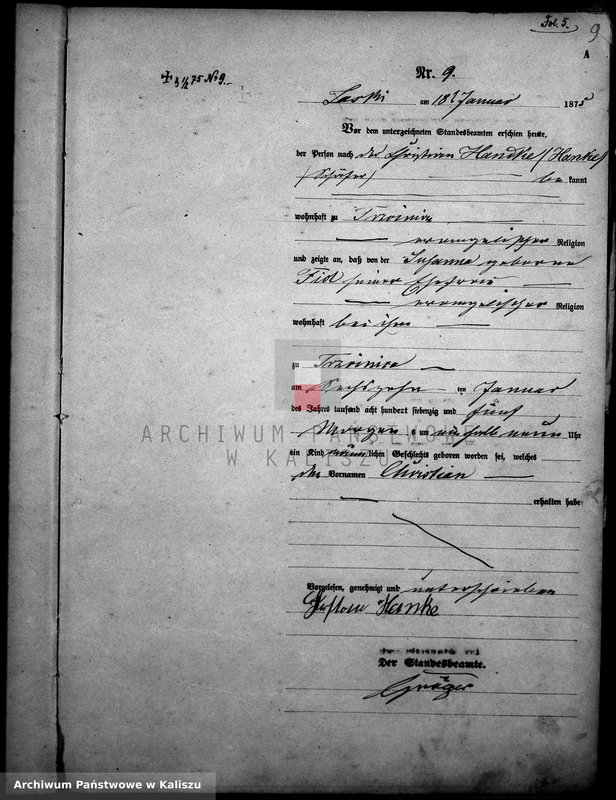 Fol. 5.
9
A
+ 3 1/2 75 No 9.
Nr. 9.
Laski am 18t Januar 1875
Vor dem unterzeichneten Standesbeamten erschien heute,
der Person nach der Christian Handke / Hanke /
(Schäfer) — be kannt
wohnhaft zu Trzcinica —
— evangelischer Religion
und zeigte an, daß von der Susanna geborne
seiner Ehefrau —
— evangelischer Religion
wohnhaft bei ihm —
zu Trzcinica —
am Sechszehn ten Januar
des Jahres tausend acht hundert siebenzig und fünf
Morgens um ein halb neun Uhr
ein Kind männlichen Geschlechts geboren worden sei, welches
den Vornamen Christian —
— erhalten habe
Vorgelesen, genehmigt und unterschrieben
Hanke
Der Standesbeamte.
ARCHIWUM PAŃSTWOWE
W KALISZU
Archiwum Państwowe w Kaliszu